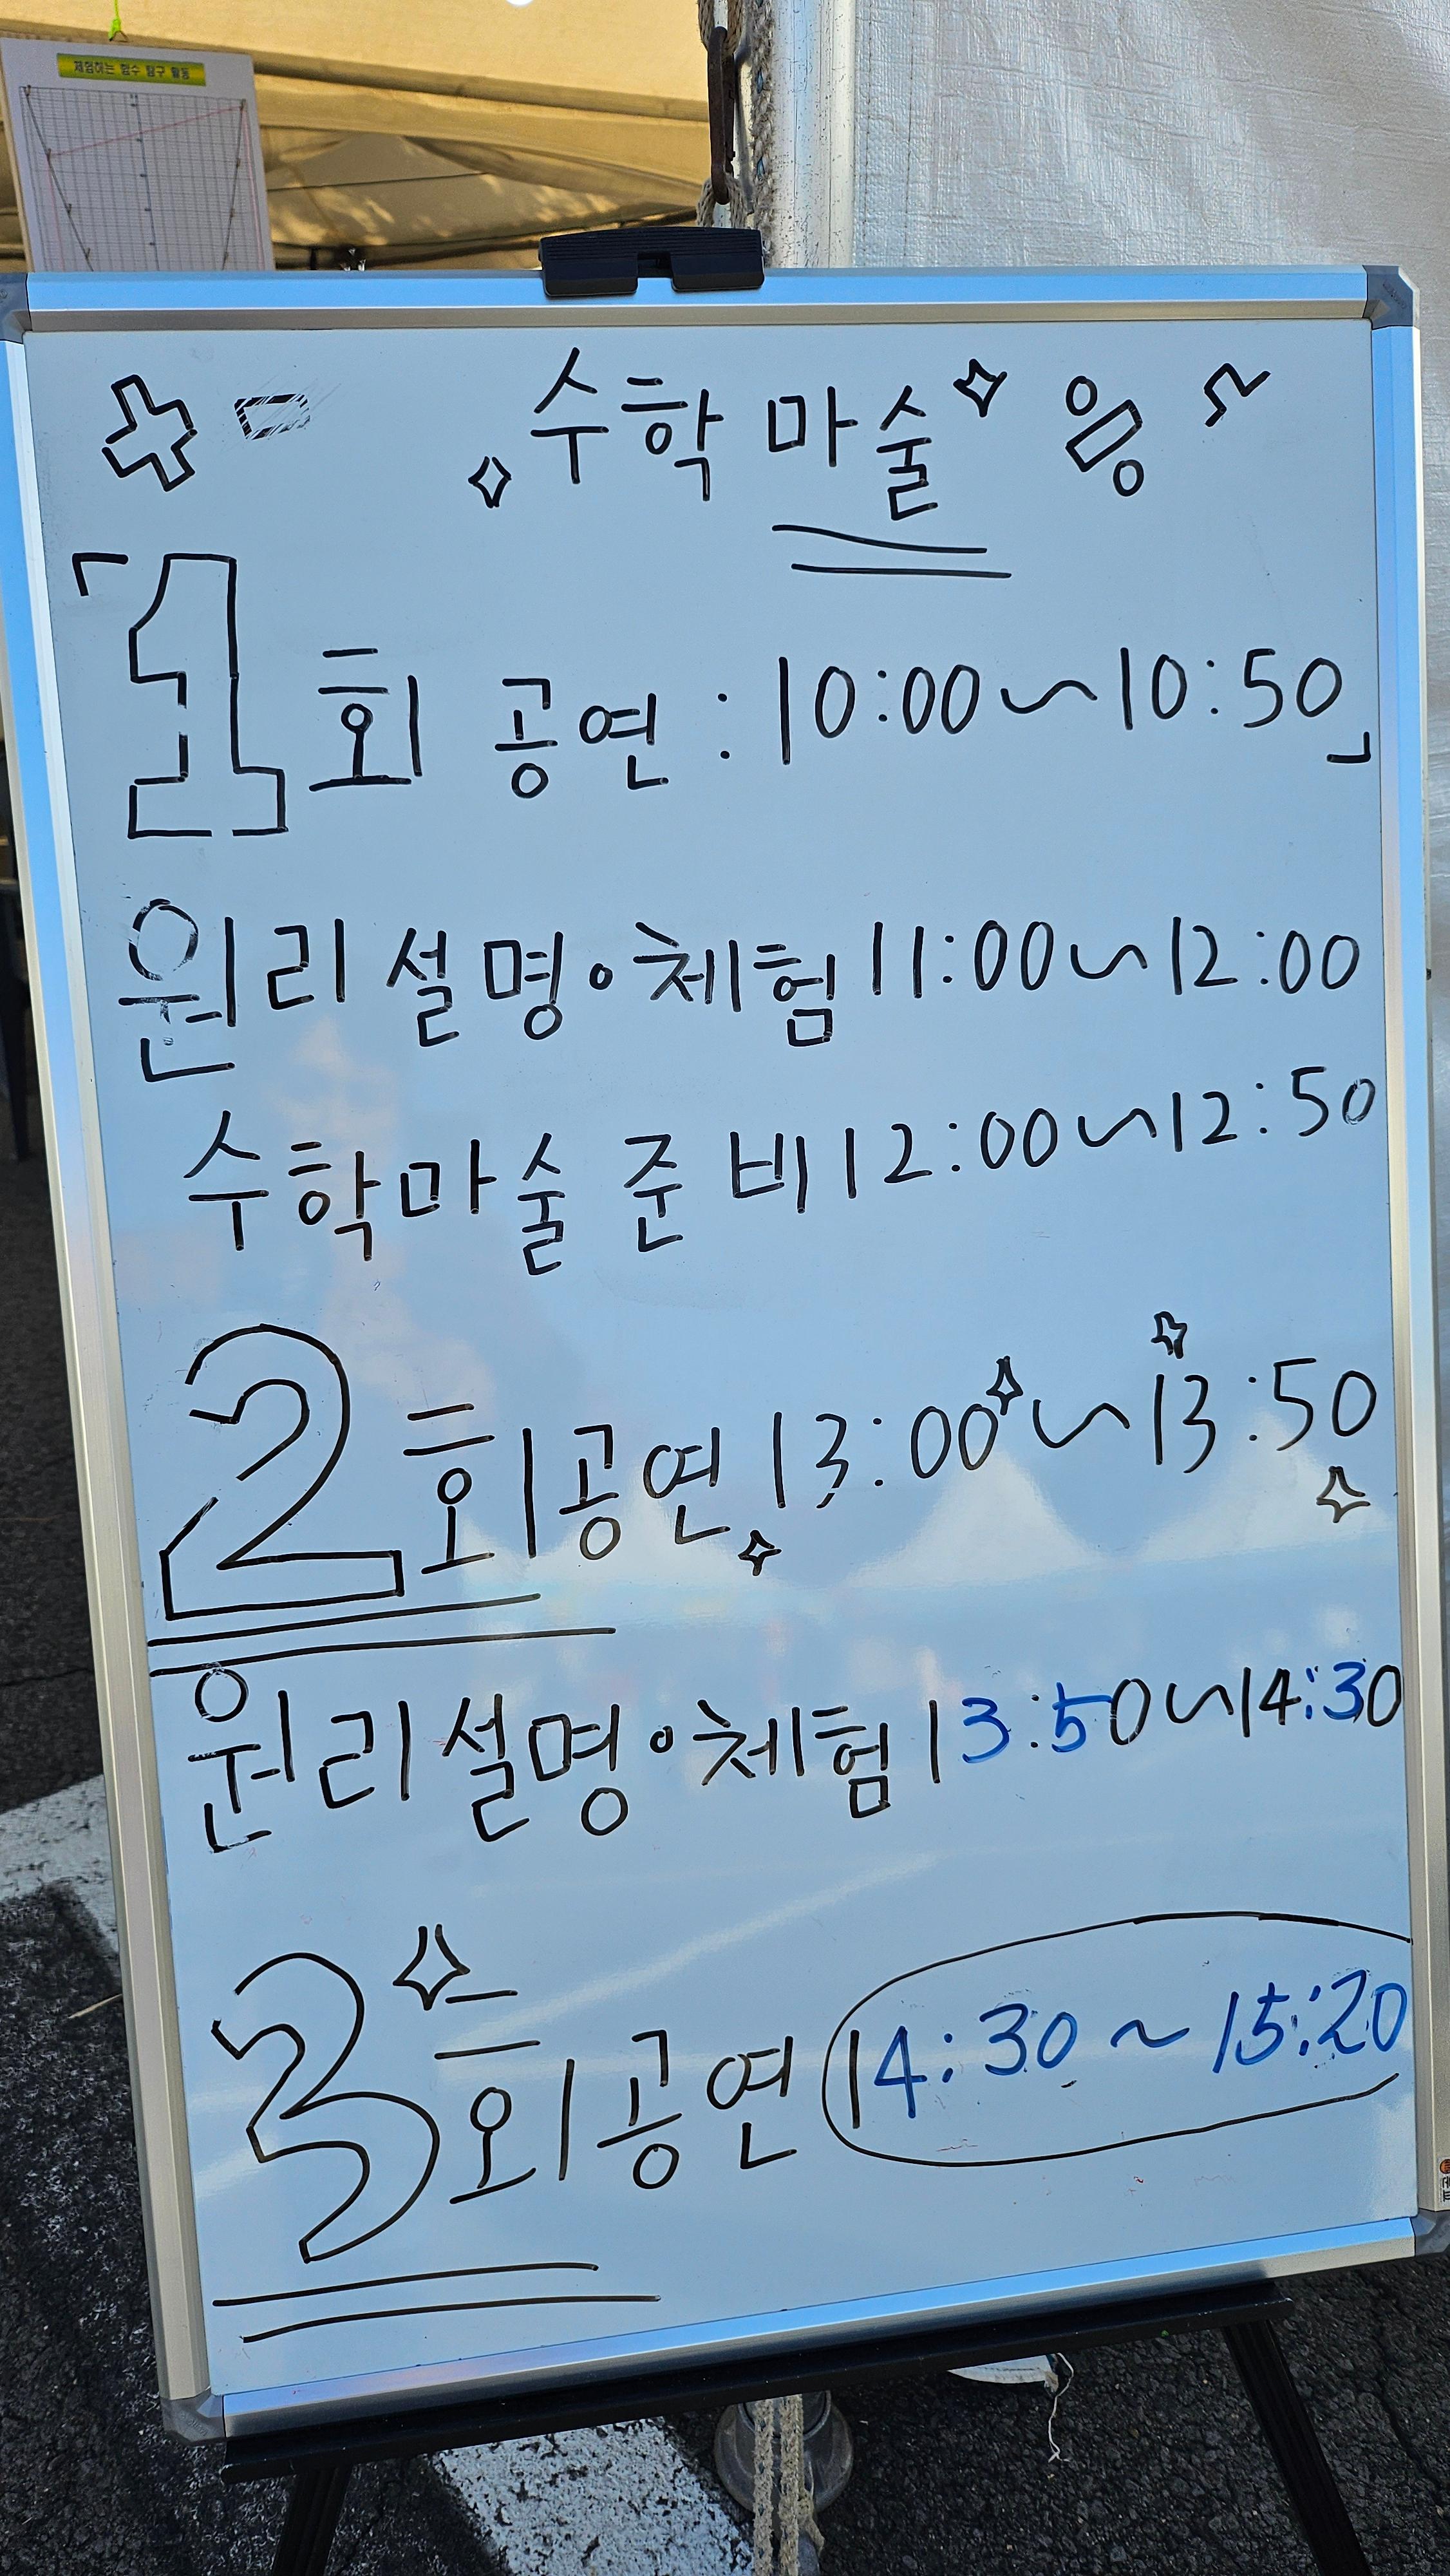 체험하는 함수 탐구 활동
수학 마술
「1회 공연 : 10:00~10:50」
원리설명•체험 11:00~12:00
수학마술 준비 12:00~12:50
2회공연 13:00~13:50
원리설명•체험 13:50~14:30
3회공연 14:30~15:20